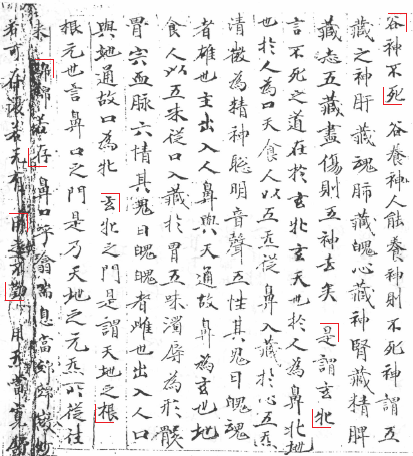 谷神不死 谷養神人能養神則不死神謂五
藏之神肝藏魂肺藏魄心藏神腎藏精脾
藏志五藏盡傷則五神去矣 是謂玄牝
言不死之道在於玄牝玄天也於人為鼻牝地
也於人為口天食人以五氣從鼻入藏於心五氣
清微為精神聡明音聲五性其鬼曰魄魂
者雄也主出入人鼻與天通故鼻為玄也地
食人以五味從口入藏於胃五味濁辱為形骸
骨宍血脉六情其鬼曰魄魄者雌也出入人口
與地通故口為牝 玄牝之門是謂天地之根
根元也言鼻口之門是乃天地之元氣所從往
来 綿綿若存 鼻口呼噏喘息當綿綿微妙
若可存復若无有 用之不勤 用氣當寬舒